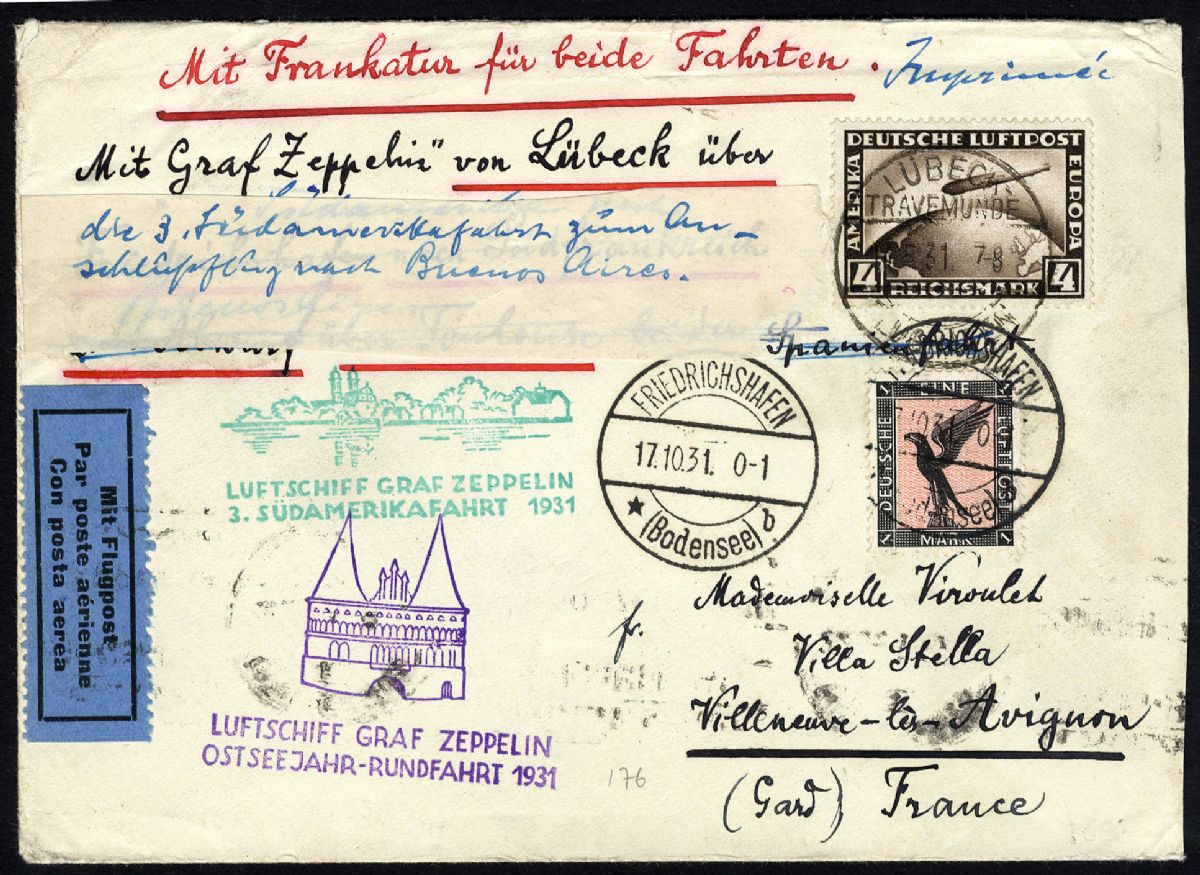 Mit Frankatur für beide Fahrten. Imprimée
Mit Graf Zeppelin" von Lübeck über
die 3. Südamerikafahrt zum An-
schlußflug nach Buenos Aires.
Spanienfahrt
DEUTSCHE LUFTPOST
AMERIKA
EUROPA
4 4
REICHSMARK
LÜBECK-
TRAVEMÜNDE
31. 7-8
FRIEDRICHSHAFEN
17.10.31. 0-1
(Bodensee) b
FRIEDRICHSHAFEN
EINE
DEUTSCHE
REICHS
MARK
1 1
1 1
Mit Flugpost
Par poste aérienne
Con posta aerea
LUFTSCHIFF GRAF ZEPPELIN
3. SÜDAMERIKAFAHRT 1931
LUFTSCHIFF GRAF ZEPPELIN
OSTSEEJAHR-RUNDFAHRT 1931
fr.
Mademoiselle Viroulet
Villa Stella
Villeneuve-lès-Avignon
(Gard) France
176